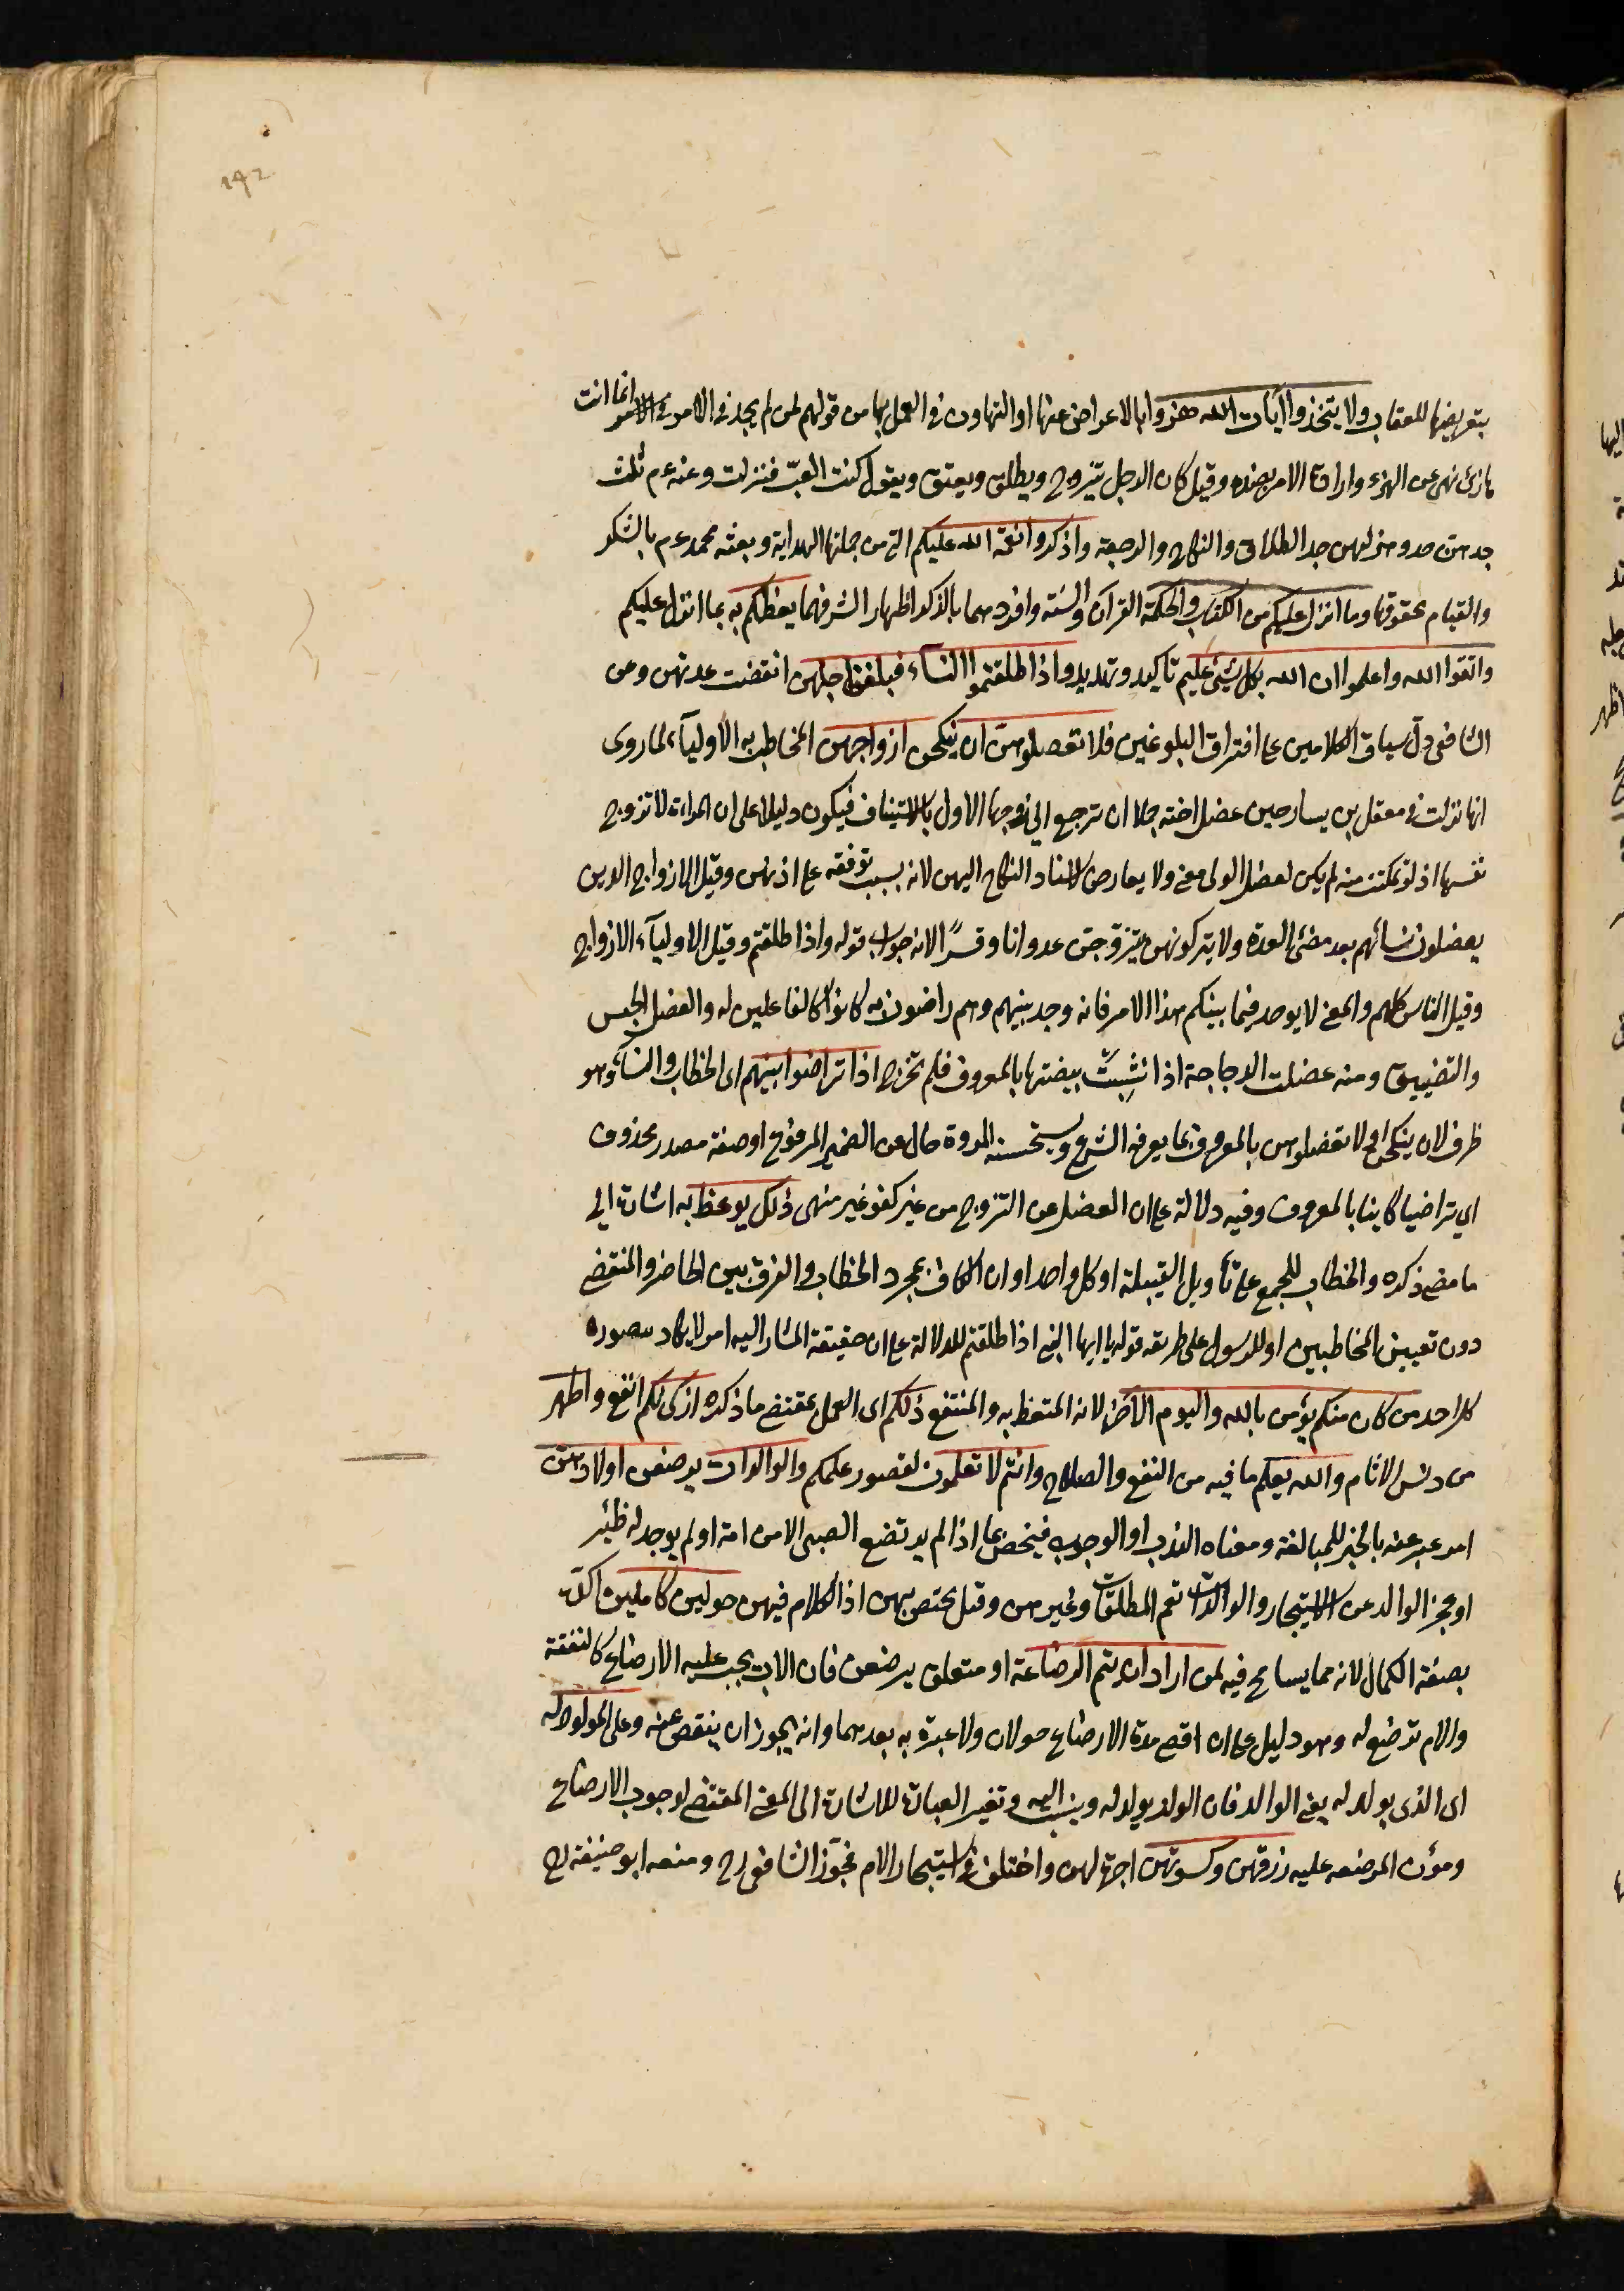 ١٩٢
بتعريضها للعقاب ولا يتخذوا آيات الله هزوا بالاعراض عنها او التهاون فى العمل بها من قولهم لمن لم يجد فى الامر انما انت
هازئ نهى عن الهزء واراد به الامر بضده وقيل كان الرجل يتزوج ويطلق ويعتق ويقول كنت العب فنزلت وعنه ءم ثلث
جدهن جد وهزلهن جد الطلاق والنكاح والرجعة واذكروا نعمة الله عليكم التى من جملتها الهداية وبعثه محمد ءم بالشكر
والقيام بحقوقها وما انزل عليكم من الكتاب والحكمة القرآن والسنة وافردهما بالذكر اظهار الشرفهما يعظكم به بما انزل عليكم
واتقوا الله واعلموا ان الله بكل شئ عليم تاكيد وتهديد واذا طلقتموا النساء فبلغن اجلهن انقضت عدتهن وعن
الشافعى دل سياق الكلامين على افتراق البلوغين فلا تعضلوهن ان ينكحن ازواجهن المخاطب به الاولياء لما روى
انها نزلت فى معقل بن يسار حين عضل اخته جلا ان ترجع الى زوجها الاول بالاستيناف فيكون دليلا على ان المراءة لا تزوج
نفسها اذ لو تمكنت منه لم يكن لعضل الولى معنى ولا يعارض باسناد النكاح اليهن لانه بسبب توقفه على اذنهن وقيل الازواج الذين
يعضلون نسائهم بعد مضى العدة ولا يتركونهن يتزوجن عدوانا وقسرا لانه جواب قوله واذا طلقتم وقيل الاولياء الازواج
وقيل الناس كلهم والمعنى لا يوجد فيما بينكم هذا الامر فانه وجد بينهم وهم راضون به كانوا كالفاعلين له والعضل الحبس
والتضييق ومنه عضلت الدجاجة اذا نشبت بيضتها بالمعروف فلم تخرج اذا تراضوا بينهم اى الخطاب والنساء وهو
ظرف لان ينكحن او لا تعضلوهن بالمعروف بما يعرفه الشرع وتستحسنه المروة حال عن الضمير المرفوع او صفة مصدر محذوف
اى تراضيا كاينا بالمعروف وفيه دلالة على ان العضل عن التزوج من غير كفو غير منهى ذلك يوعظ به اشارة الى
ما مضى ذكره والخطاب للجمع على تأويل القبيلة او كل واحد او ان الكاف بمجرد الخطاب والفرق بين الحاضر والمنقضى
دون تعيين المخاطبين او للرسول على طريقه قوله يا ايها النبى اذا طلقتم للدلالة على ان حقيقة المشار اليه امر لا يكاد يتصوره
كل احد من كان منكم يؤمن بالله واليوم الآخر لانه المتعظ به والمنتفع ذلكم اى العمل بمقتضى ما ذكره ازكى لكم انفع واطهر
من دنس الاثام والله يعلم ما فيه من النفع والصلاح وانتم لا تعلمون لقصور علمكم والوالدات يرضعن اولادهن
امر عبر عنه بالخبر للمبالغة ومعناه الندب او الوجوب فيخص بما اذا لم يرتضع الصبى الا من امه او لم يوجد له ظئر
او عجز الوالد عن الاستيجار والوالدات تعم المطلقات وغيرهن وقيل يختص بهن اذ الكلام فيهن حولين كاملين اكد
بصفة الكمال لانه مما يسامح فيه لمن اراد ان يتم الرضاعة او متعلق يرضعن فان الاب يجب عليه الارضاع كالنفقة
والام ترضع له وهو دليل على ان اقصى مدة الارضاع حولان ولا عبرة به بعدهما وانه يجوز ان ينقص عنه وعلى المولود له
اى الذى يولد له يعنى الوالد فان الولد يولد له وينسب اليه وتغير العبارة للاشارة الى المعنى المقتضى لوجوب الارضاع
ومؤن المرضعه عليه رزقهن وكسوتهن اجرة لهن واختلف فى استيجار الام فجوز الشافعى رح ومنعه ابو حنيفة رح